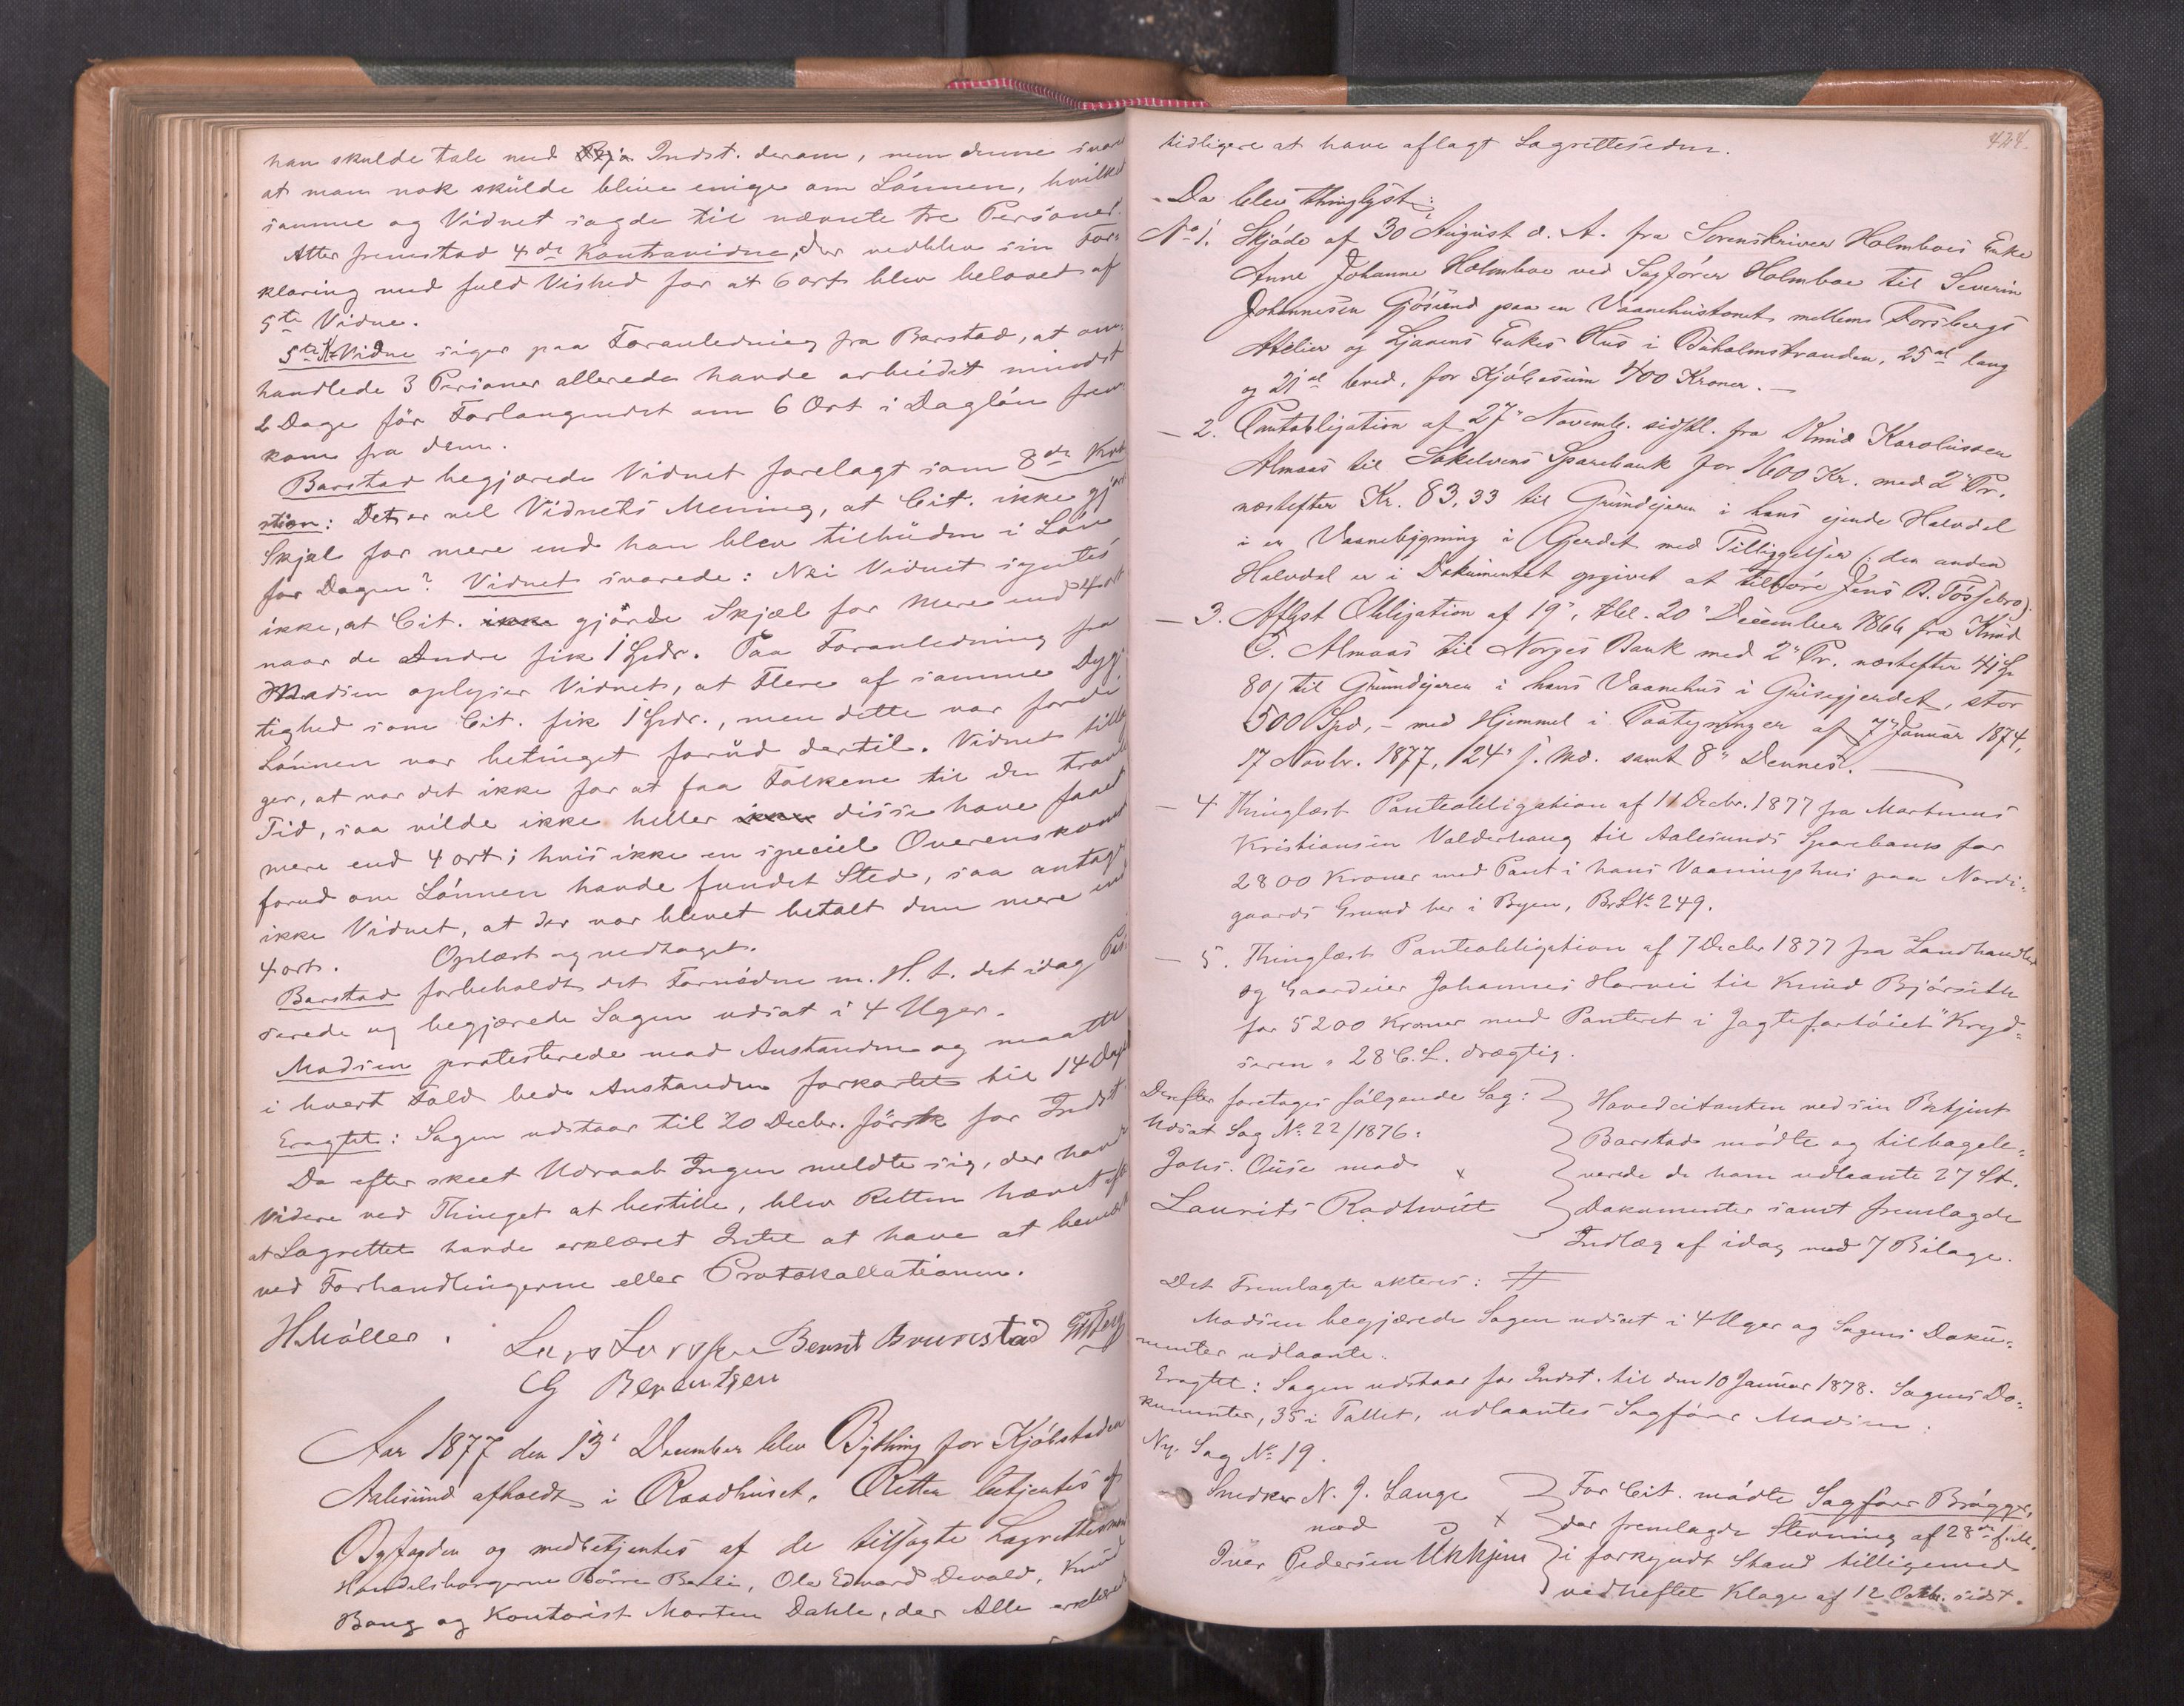 han skulde tale med Indst. derom, men denne svar
at man nok skulde blive enige om Lönnen, hvilket
samme og Vidnet sagde til nævnte tre Personer.
Atter fremstod 4de Kontravidne, der vedblev sin For-
klaring med fuld Vished for at 6 ort blev belovet af
5te Vidne.
5te K-Vidne siger paa Foranledning fra Barstad, at om-
handlede 3 Personer allerede havde arbeidet mindst
2 Dage för Forlangendet om 6 Ort i Daglön frem-
kom fra dem.
Barstad begjærede Vidnet forelagt som 8de Kv
stion: Det er vel Vidnets Mening, at Cit. ikke gjor
Skjæl for mere end han blev tilbuden i Lön
for Dagen? Vidnet svarede: Nei Vidnet syntes
ikke, at Cit. ikke gjörde Skjæl for mere end 4 ort
naar de Andre fik 1 Spdr. Paa Foranledning fra
Madsen oplyser Vidnet, at Flere af samme Dyg-
tighed som Cit. fik 1 Spdr., men dette var fordi
Lönnen var betinget forud dertil. Vidnet tillæ
ger, at var det ikke for at faa Folkene til den travle
Tid, saa vilde ikke heller ikke disse have faaet
mere end 4 ort; hvis ikke en speciel Overenskomst
forud om Lönnen havde fundet Sted, saa antager
ikke Vidnet, at der var blevet betalt dem mere end
4 ort. Oplæst og vedtaget.
Barstad forbeholdt det Fornödne m. H. t. det idag Pas-
serede og begjærede Sagen udsat i 4 Uger.
Madsen protesterede mod Anstanden og maatte
i hvert Fald bede Anstanden forkortet til 14 Dage
Eragtet: Sagen udstaar til 20 Decbr. först for Indst.
Da efter skeet Udraab Ingen meldte sig, der havde
videre ved Thinget at bestille, blev Retten hævet efte
at Lagrettet havde erklæret Intet at have at bemær
ved Forhandlingerne eller Protokollationen.
H Möller. Lars Larssen Bernt Brunestad
G Berentsen
Aar 1877 den 13de December blev Bything for Kjöbstaden
Aalesund afholdt i Raadhuset. Retten betjentes af
Byfogden og medbetjentes af de tilsagte Lagrettesmæn
Handelsborgerne Börre Berli, Ole Edvard Devold, Knud
Bang og Kontorist Morten Dahle, der Alle erklærede
424.
tidligere at have aflagt Lagretteseden.
Da blev thinglyst:
No 1. Skjöde af 30 August d. A. fra Sorenskriver Holmboes Enke
Anne Johanne Holmboe ved Sagförer Holmboe til Severin
Johannesen Gjösund paa en Vaanehustomt mellem Forsbergs
Atelier og Ljaaens Enkes Hus i Buholmstranden, 25 al lang
og 21 al bred, for Kjöbesum 400 Kroner. —
— 2. Pantobligation af 27" Novemb. sidstl. fra Knud Karolussen
Almaas til Sökelvens Sparebank for 1600 Kr. med 2" Pr.
næstefter Kr. 83,33 til Grundejeren i hans ejende Halvdel
i en Vaanebygning i Gjerdet med Tilliggelser (: den anden
Halvdel er i Dokumentet opgivet at tilhöre Jens B. Fossebro).
— 3. Aflyst Obligation af 19", tbl. 20" December 1866 fra Knud
C. Almaas til Norges Bank med 2" Pr. næstefter 41
80 / til Grundejeren i hans Vaanehus i Grisegjerdet, stor
500 Spd, - med Hjemmel i Paategninger af 7" Januar 1874,
17 Novbr. 1877, 124" f. Md. samt 8" Dennes.
— 4 Thinglæst Panteobligation af 11 Decbr. 1877 fra Martinus
Kristiansen Valderhaug til Aalesunds Sparebank for
2800 Kroner med Pant i hans Vaaningshus paa Nordi-
gaards Grund her i Byen, Br L No 249.
— 5. Thinglæst Panteobligation af 7 Decbr 1877 fra Landhandler
og Gaardeier Johannes Havnei til Knud Björseth
for 5200 Kroner med Panteret i Jagtefartöiet "Kryd-
seren" 28 C. L. drægtig.
Derefter foretoges fölgende Sag:
Udsat Sag No 22/1876:
Johs. Ouse mod x
Laurits Rodtwitt
Hovedcitanten ved sin Betjent
Barstad mödte og tilbagele-
verede de ham udlaante 27 St.
Dokumenter samt fremlagde
Indlæg af idag med 7 Bilage.
Det Fremlagte akteres: #
Madsen begjærede Sagen udsat i 4 Uger og Sagens Doku-
menter udlaante.
Eragtet: Sagen udstaar for Indst. til den 10 Januar 1878. Sagens Do-
kumenter, 35 i Tallet, udlaantes Sagförer Madsen.
Ny Sag No 19.
Snedker N. J. Lange
mod x
Iver Pedersen Ukkjem
For Cit. mödte Sagförer Brögger,
der fremlagde Stevning af 28de f. M.
i forkyndt Stand tilligemed
vedheftet Klage af 12 Octbr. sidst.